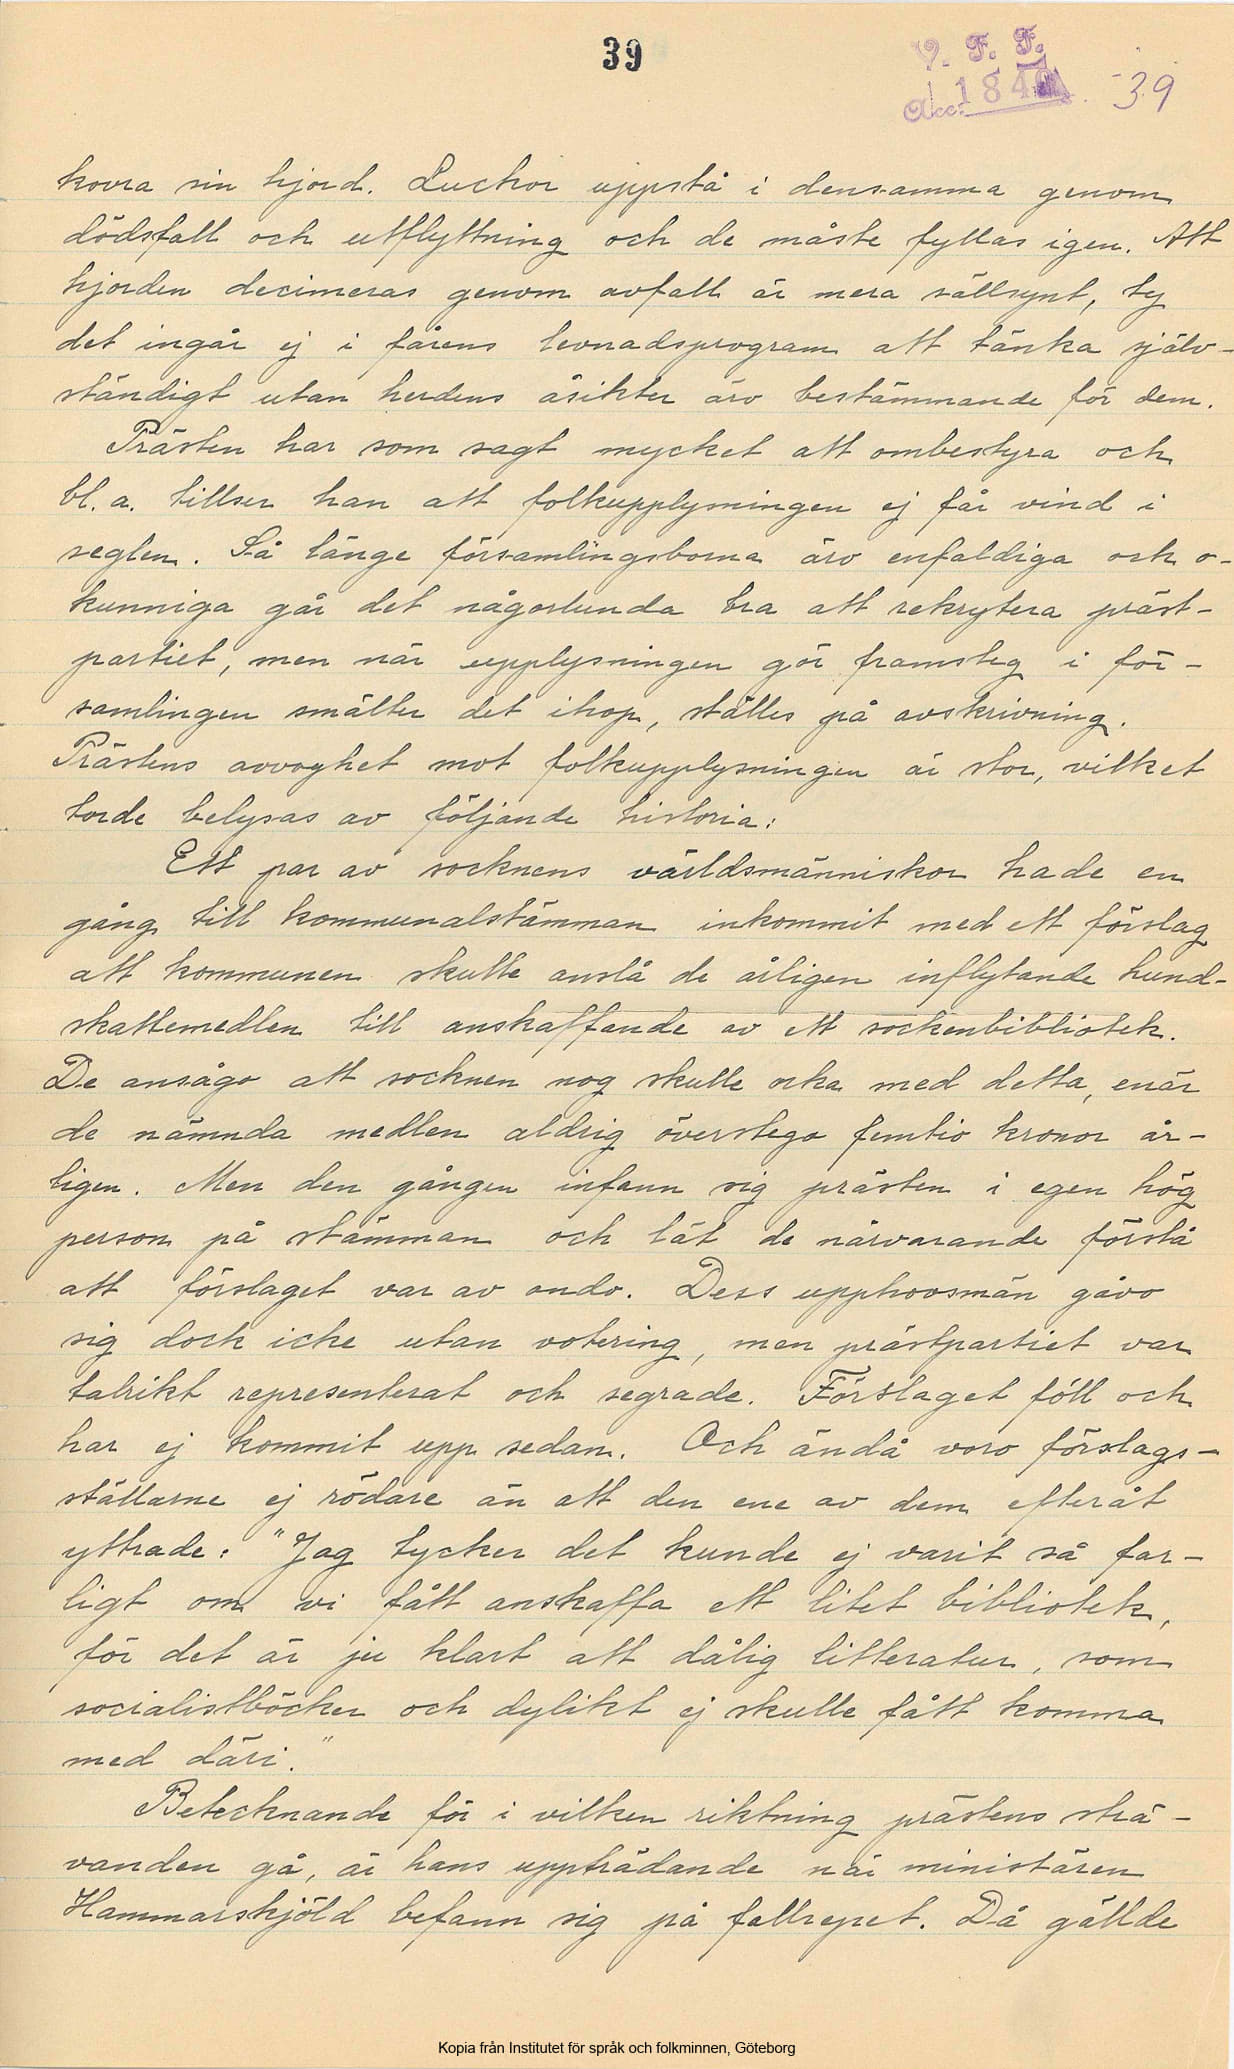 39
V. F. F.
Acc. 1840 39
kovra sin hjord. Luckor uppstå i densamma genom
dödsfall och utflyttning och de måste fyllas igen. Att
hjorden decimeras genom avfall är mera sällsynt, ty
det ingår ej i fårens levnadsprogram att tänka själv-
ständigt utan herdens åsikter äro bestämmande för dem.
Prästen har som sagt mycket att ombestyra och
bl. a. tillser han att folkupplysningen ej får vind i
seglen. Så länge församlingsborna äro enfaldiga och o-
kunniga går det någorlunda bra att rekrytera präst-
partiet, men när upplysningen gör framsteg i för-
samlingen smälter det ihop, ställes på avskrivning.
Prästens avvoghet mot folkupplysningen är stor, vilket
torde belysas av följande historia:
Ett par av socknens världsmänniskor hade en
gång till kommunalstämman inkommit med ett förslag
att kommunen skulle anslå de årligen inflytande hund-
skattemedlen till anskaffande av ett sockenbibliotek.
De ansågo att socknen nog skulle orka med detta, enär
de nämnda medlen aldrig överstego femtio kronor år-
ligen. Men den gången infann sig prästen i egen hög
person på stämman och lät de närvarande förstå
att förslaget var av ondo. Dess upphovsmän gåvo
sig dock icke utan votering, men prästpartiet var
talrikt representerat och segrade. Förslaget föll och
har ej kommit upp sedan. Och ändå voro förslags-
ställarne ej rödare än att den ene av dem efteråt
yttrade: "Jag tycker det kunde ej varit så far-
ligt om vi fått anskaffa ett litet bibliotek,
för det är ju klart att dålig litteratur, som
socialistböcker och dylikt ej skulle fått komma
med däri."
Betecknande för i vilken riktning prästens strä-
vanden gå, är hans uppträdande när ministären
Hammarskjöld befann sig på fallrepet. Då gällde
Kopia från Institutet för språk och folkminnen, Göteborg